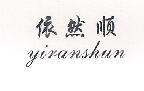 依然顺
yiranshun